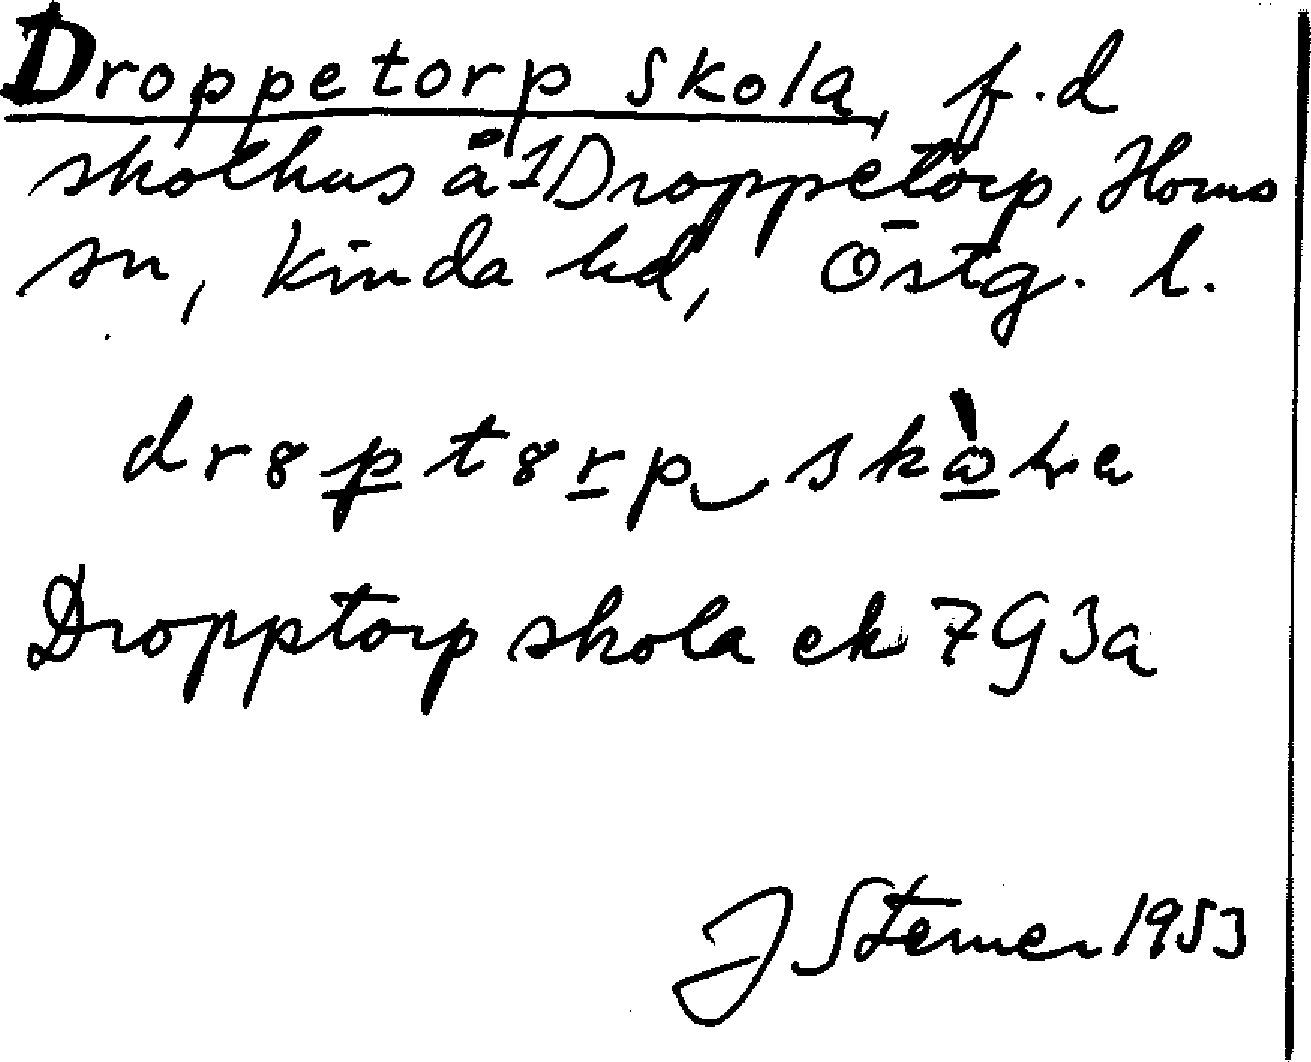 Droppetorp skola, f.d
skolhus å 1Droppetorp, Horns
sn, Kinda hd, Östg. l.
dr8pt8rp skòla
Dropptorp skola ek 7G3a
J Sterner 1953